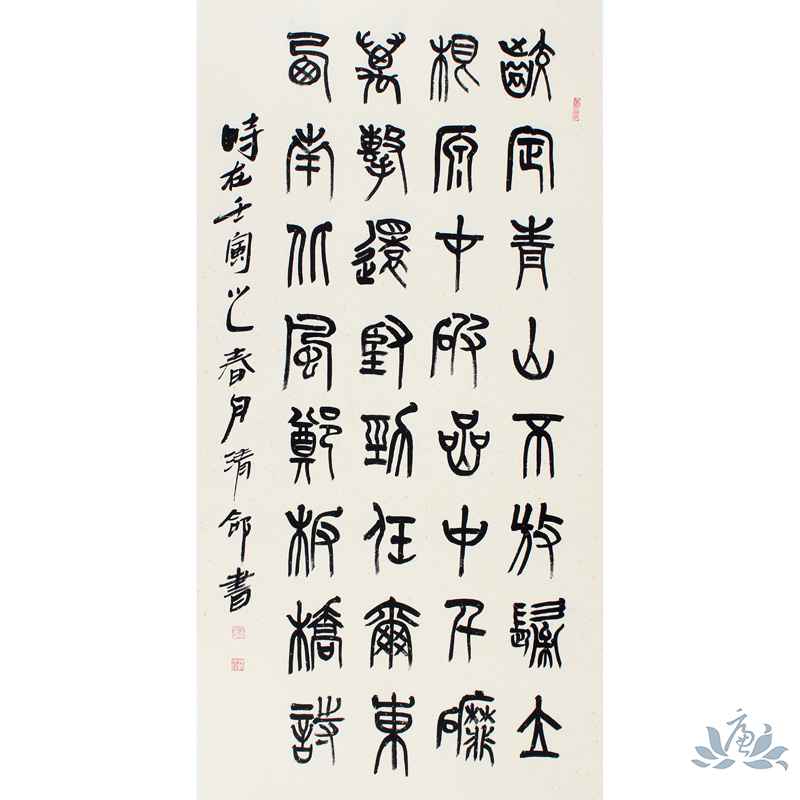 齩定青山不放鬆立
根原在破嵒中千磨
萬擊還堅勁任爾東
西南北風鄭板橋詩
時在壬寅之春月清書